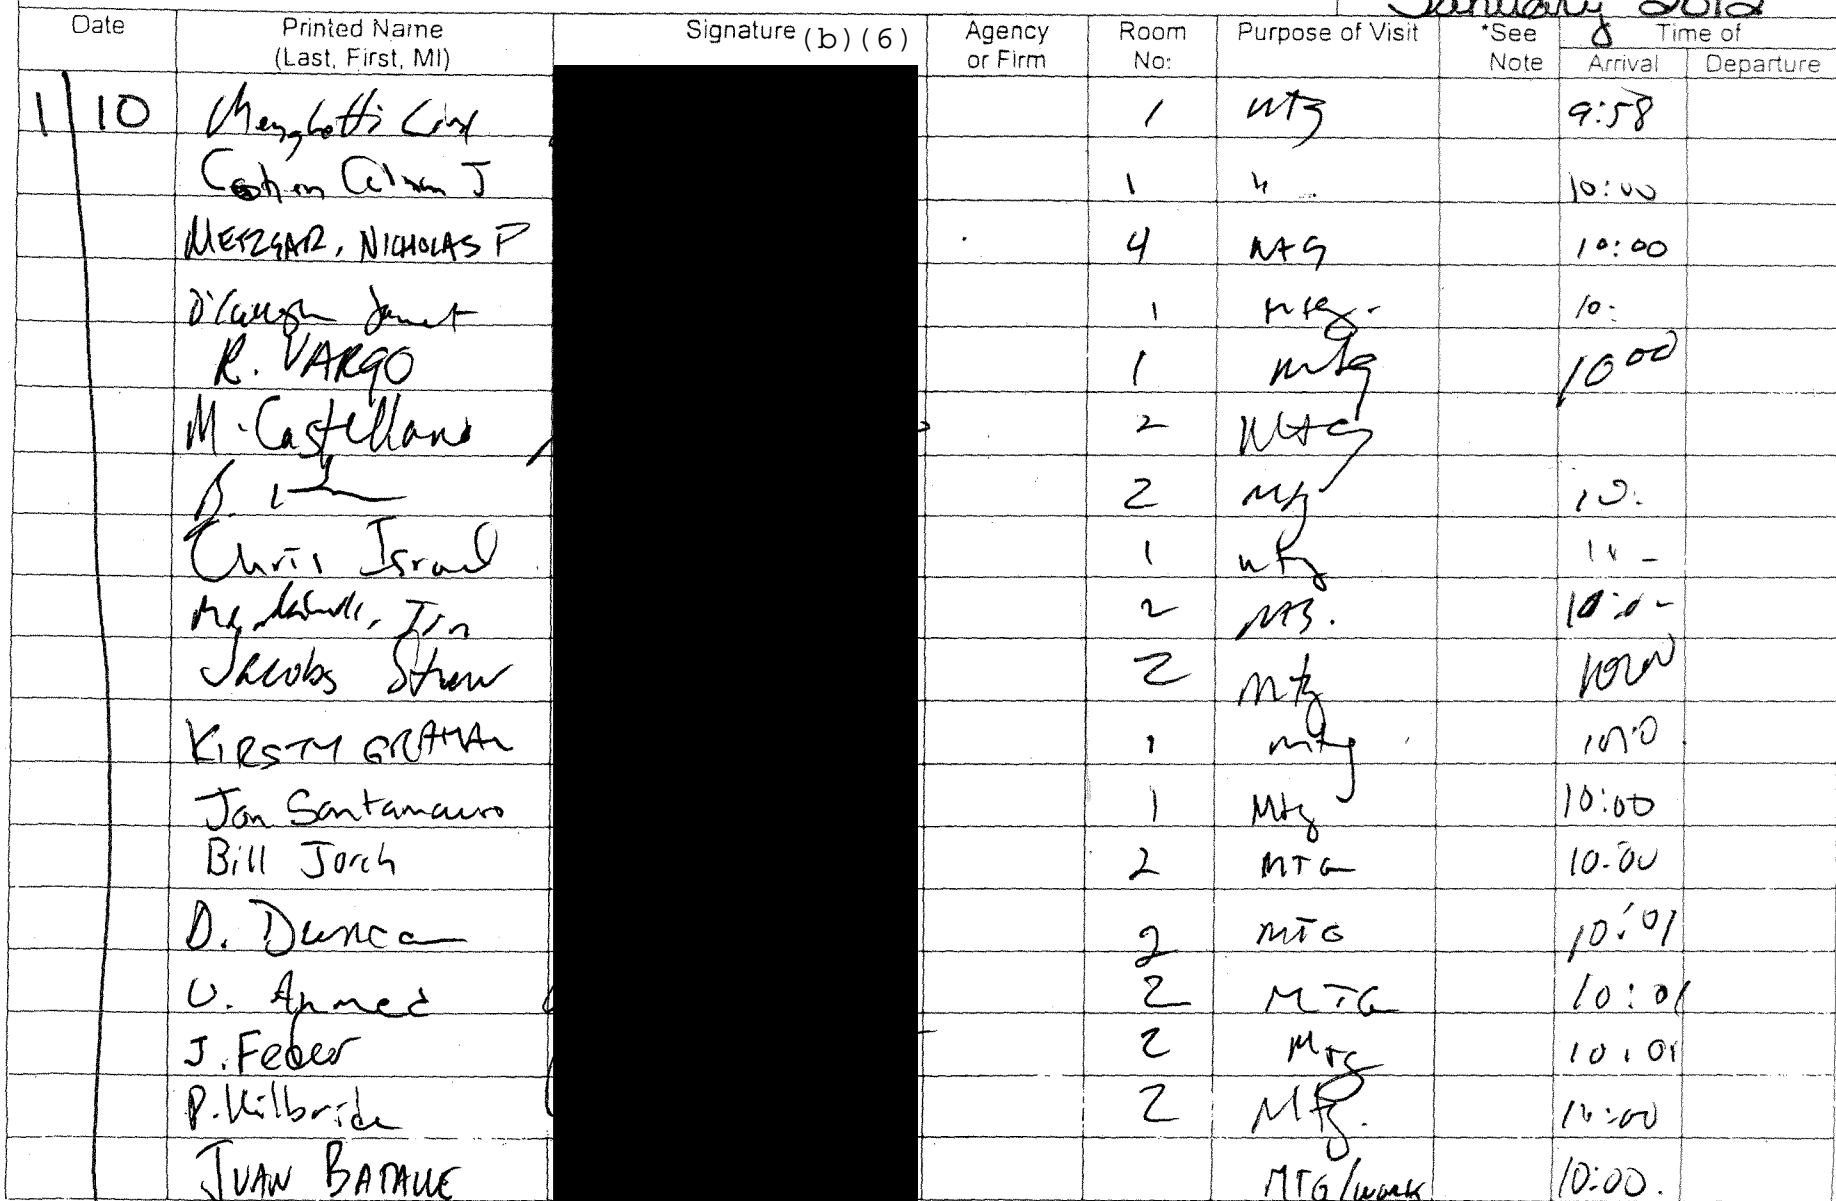 January 2012
Date Printed Name (Last, First, MI) Signature (b)(6) Agency or Firm Room No: Purpose of Visit *See Note Time of Arrival Departure
1 10 1 mtg 9:58
J 1 " 10:00
METZGAR, NICHOLAS P 4 MtG 10:00
1 mtg. 10:
R. VARGO 1 mtg 10 00
M. Castellano 2 Mtg
B. 2 Mtg 10:
Chris Israel 1 mtg
2 Mtg.
Jacobs 2 Mtg 10:00
KIRSTY GRAHAM 1 mtg
Jon Santamauro 1 Mtg 10:00
Bill Jorch 2 MTG 10:00
D. Duncan 2 MTG 10:01
U. Ahmed 2 MTG 10:01
J. Feder 2 MTG 10:01
P. Kilbride 2 Mtg. 10:00
JUAN MTG/work 10:00.